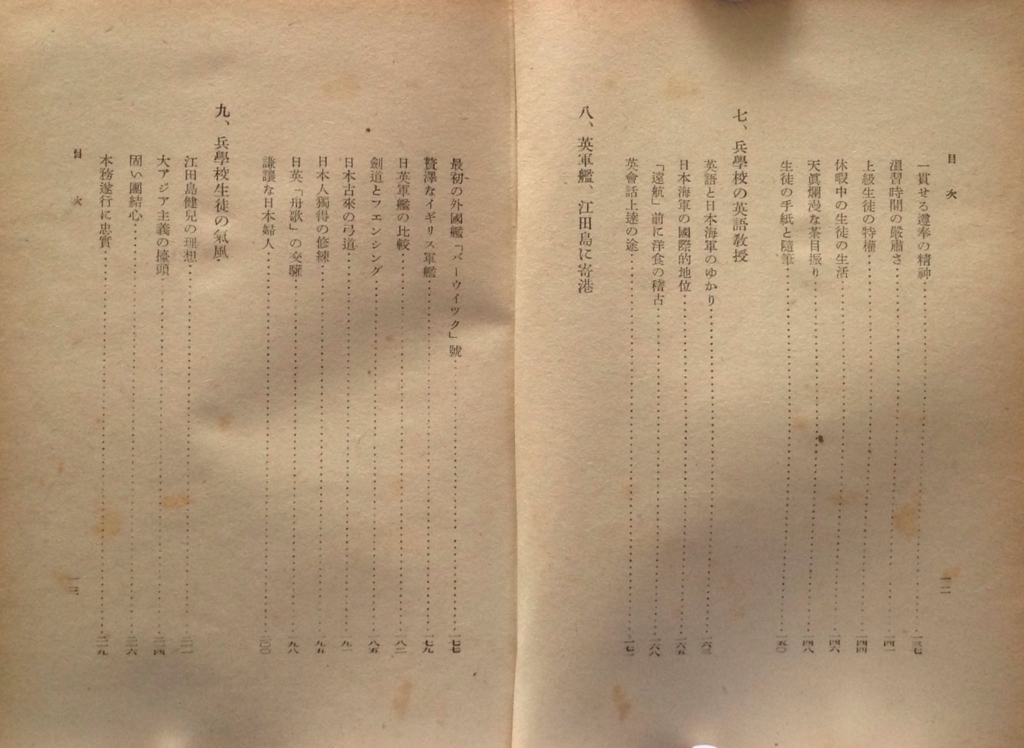 目次
一二
一貫せる遵奉の精神……一三七
溫習時間の嚴肅さ……一四一
上級生徒の特權……一四四
休暇中の生徒の生活……一四六
天眞爛漫な茶目振り……一四八
生徒の手紙と隨筆……一五〇
七、兵學校の英語敎授
英語と日本海軍のゆかり……一六三
日本海軍の國際的地位……一六五
「遠航」前に洋食の稽古……一六八
英會話上達の途……
八、英軍艦、江田島に寄港
最初の外國艦「バーウイツク」號……一七七
贅澤なイギリス軍艦……一七九
日英軍艦の比較……一八二
劍道とフエンシング……一八五
日本古來の弓道……一九一
日本人獨得の修練……一九五
日英「舟歌」の交驩……一九八
謙讓な日本婦人……二〇〇
九、兵學校生徒の氣風
江田島健兒の理想……二一一
大アジア主義の擡頭……二一四
固い團結心……二一六
本務遂行に忠實……二一九
目次
一三